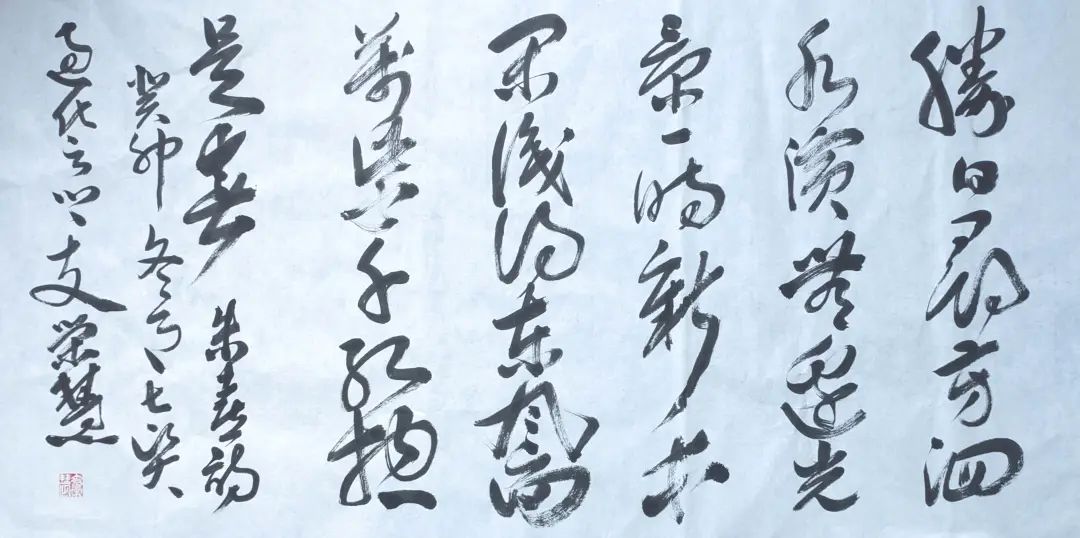 勝日尋芳泗
水濱無邊光
景一時新等
閑識得東風面
萬紫千紅總
是春 朱熹詩
癸卯冬月七賢
支榮慧